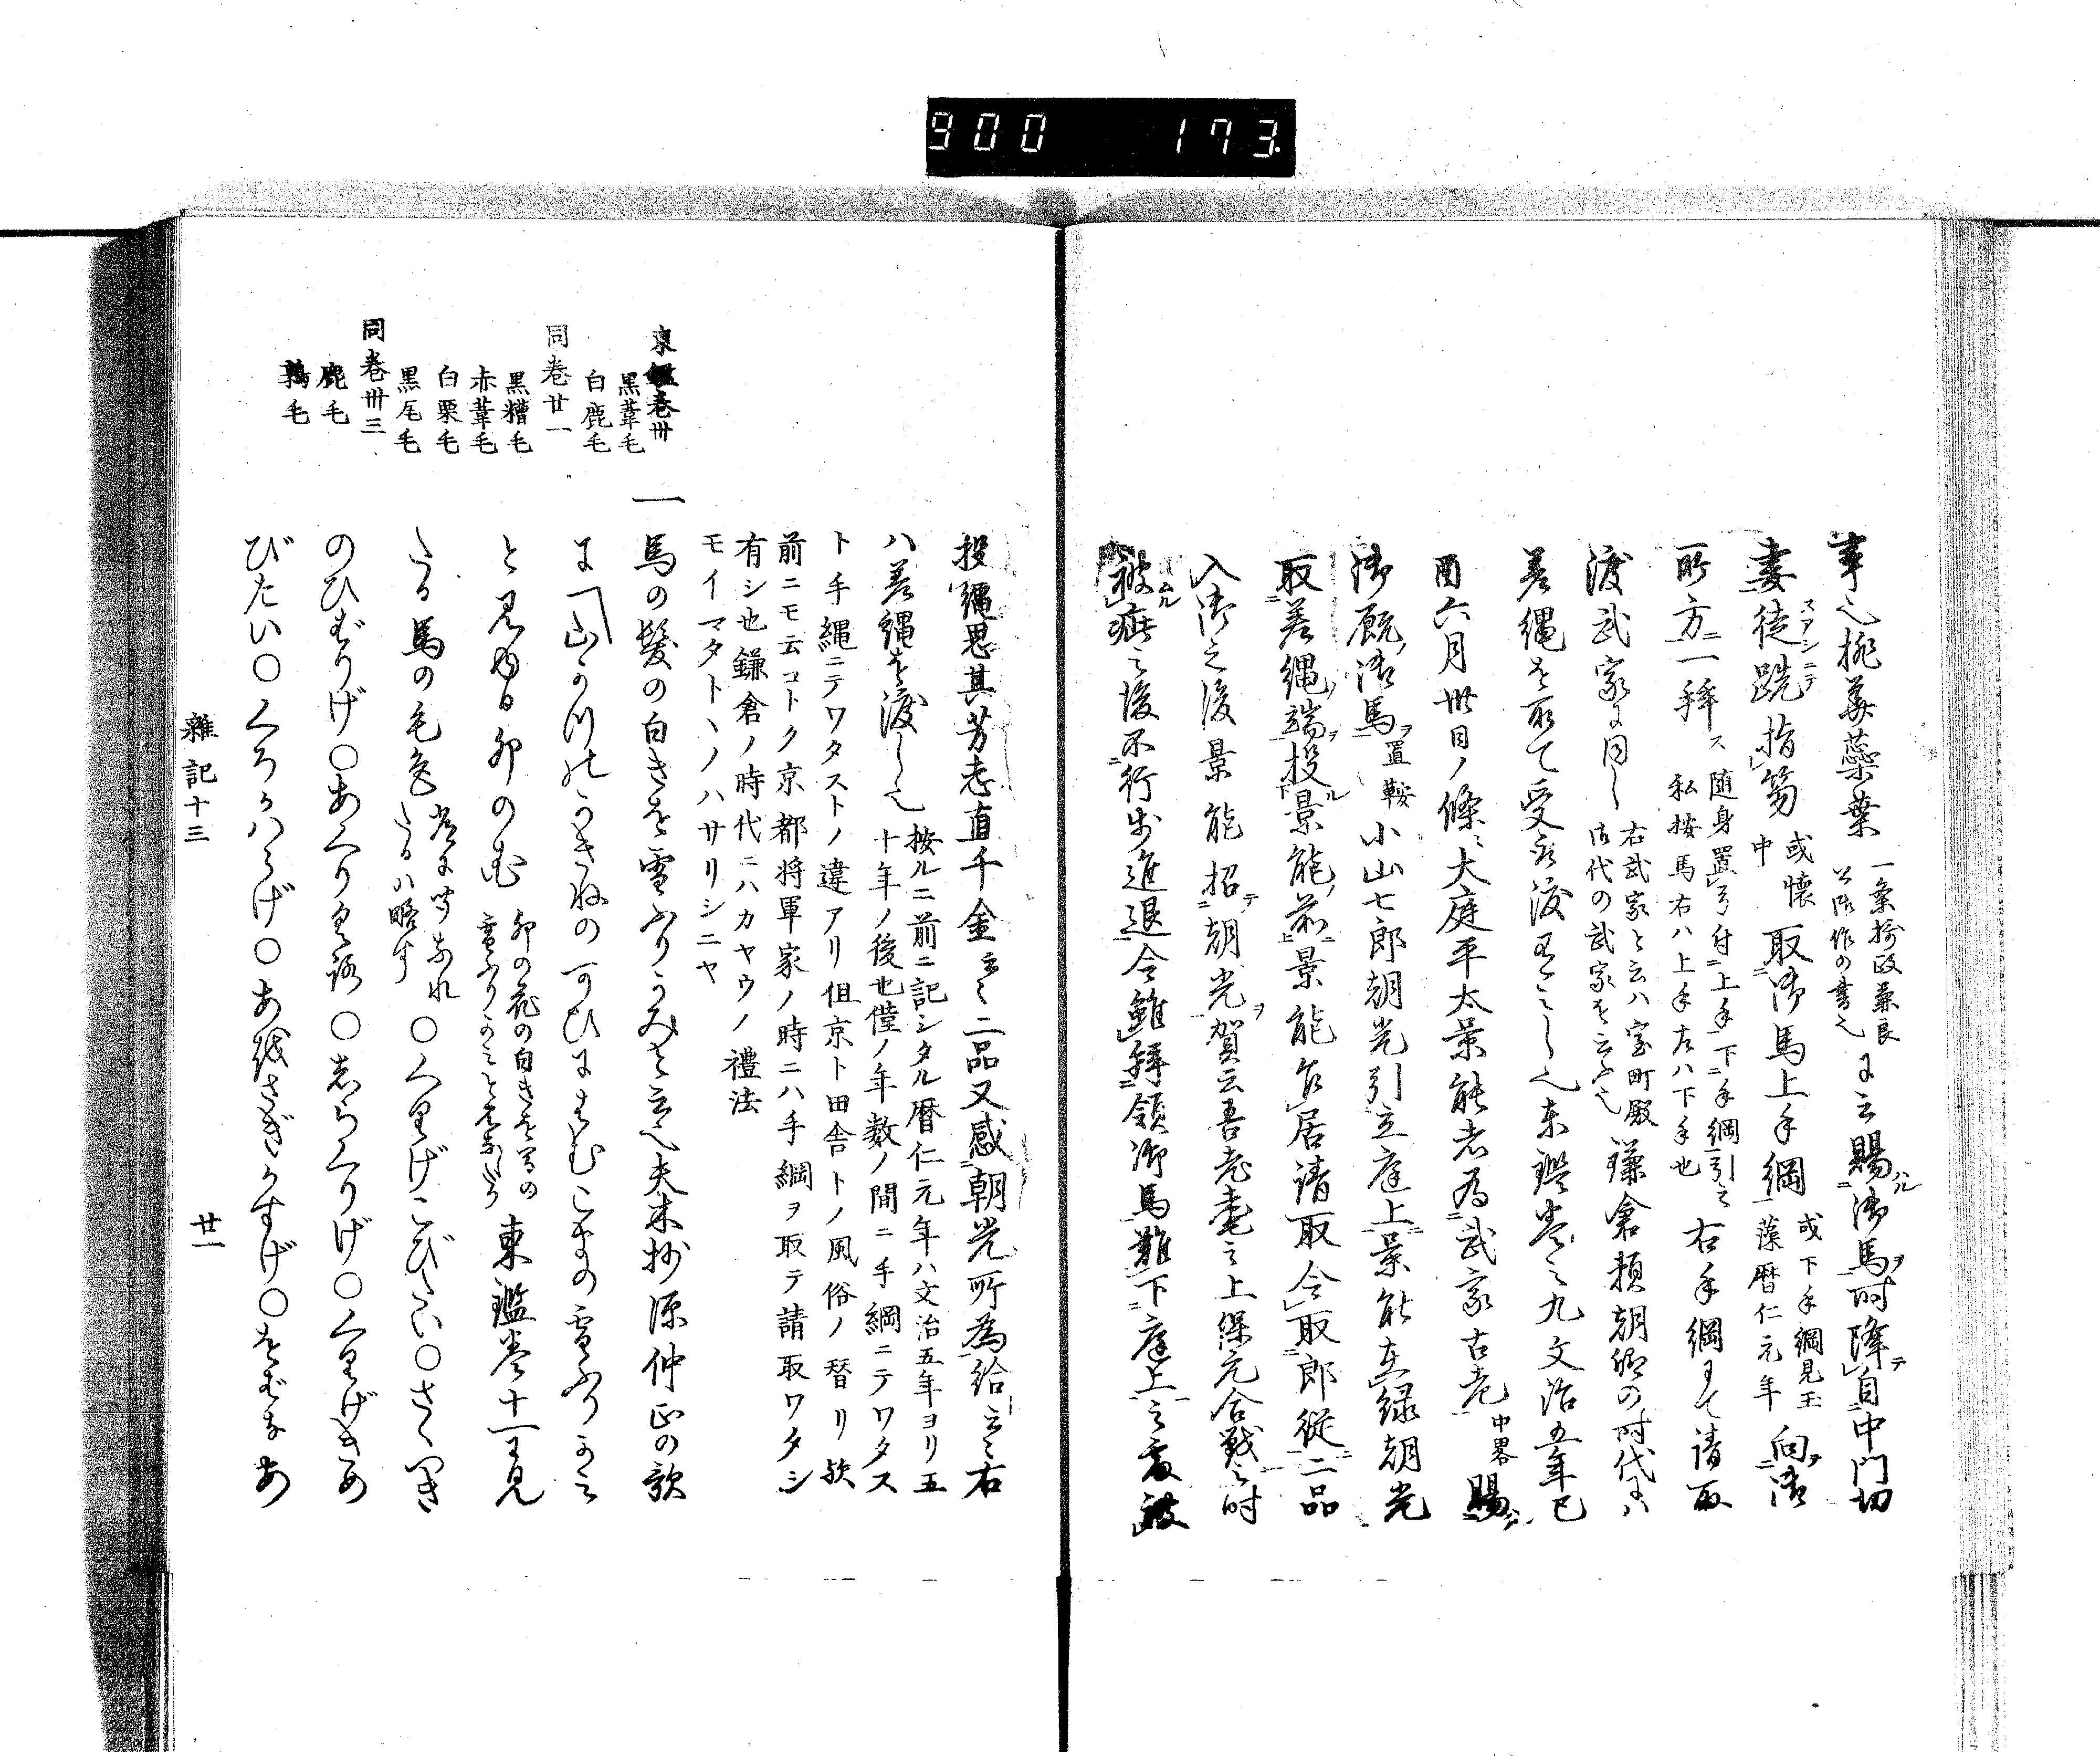 900 173.
事也桃華蘂葉 一条摂政兼良公御作の書也 に云賜ル御馬ヲ時降テ自中門切
妻徒跣スアシニテ指笏 或懐中 取御馬上手綱 或下手綱見玉藻暦仁元年 向御
所方ニ一拝ス 随身置弓付上手下ニ手綱引之 私按馬右ハ上手左ハ下手也 右手綱にて請取
渡武家に同し 右武家と云ハ室町殿御代の武家を云ふ也 鎌倉頼朝卿の時代にハ
差縄を取て受取渡有之し也東鑑巻之九文治五年己
酉六月卅日ノ條ニ大庭平太景能者為武家古老 中畧 賜ハ
御厩ノ御馬ヲ 置鞍 小山七郎朝光引立庭上景能在縁朝光
取差縄ノ端ヲ投ル景能ノ前ニ景能乍居請取令取郎従二品
入御之後景能招テ朝光ヲ賀云吾老耄之上保元合戦之時
被ムル疵之後不行歩進退今雖拝領御馬難下庭上之處被
投縄思其芳志直千金云々二品又感朝光所為給云々右
ハ差縄を渡し也 按ルニ前ニ記シタル暦仁元年ハ文治五年ヨリ五
十年ノ後也僅ノ年数ノ間ニ手綱ニテワタス
ト手縄ニテワタストノ違アリ但京ト田舎トノ風俗ノ替リ歟
前ニモ云コトク京都将軍家ノ時ニハ手綱ヲ取テ請取ワタシ
有シ也鎌倉ノ時代ニハカヤウノ禮法
モイマタトヽノハサリシニヤ
東鑑巻卅
黒葦毛
白鹿毛
同巻廿一
黒糟毛
赤葦毛
白栗毛
黒尾毛
同巻卅三
鹿毛
鶉毛
一 馬の髪の白きを雪ふりかみと云也夫木抄源仲正の歌
に「山かつのかきねの一可ひにはむこまの雪ふりかみ
と見ゆる卯のはな 卯の花の白きを馬の雪ふりかみと見なしたり 東鑑巻十一に見
たる馬の毛色 常に聞なれたるハ略す ○くりげこびたい○さゝつき
のひばりげ○あくりげ駮○しらくりげ○くりげきめ
びたい○くろかハらげ○あをさぎかすげ○をばなあ
雜記十三
廿一